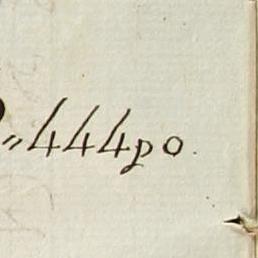 „444po.